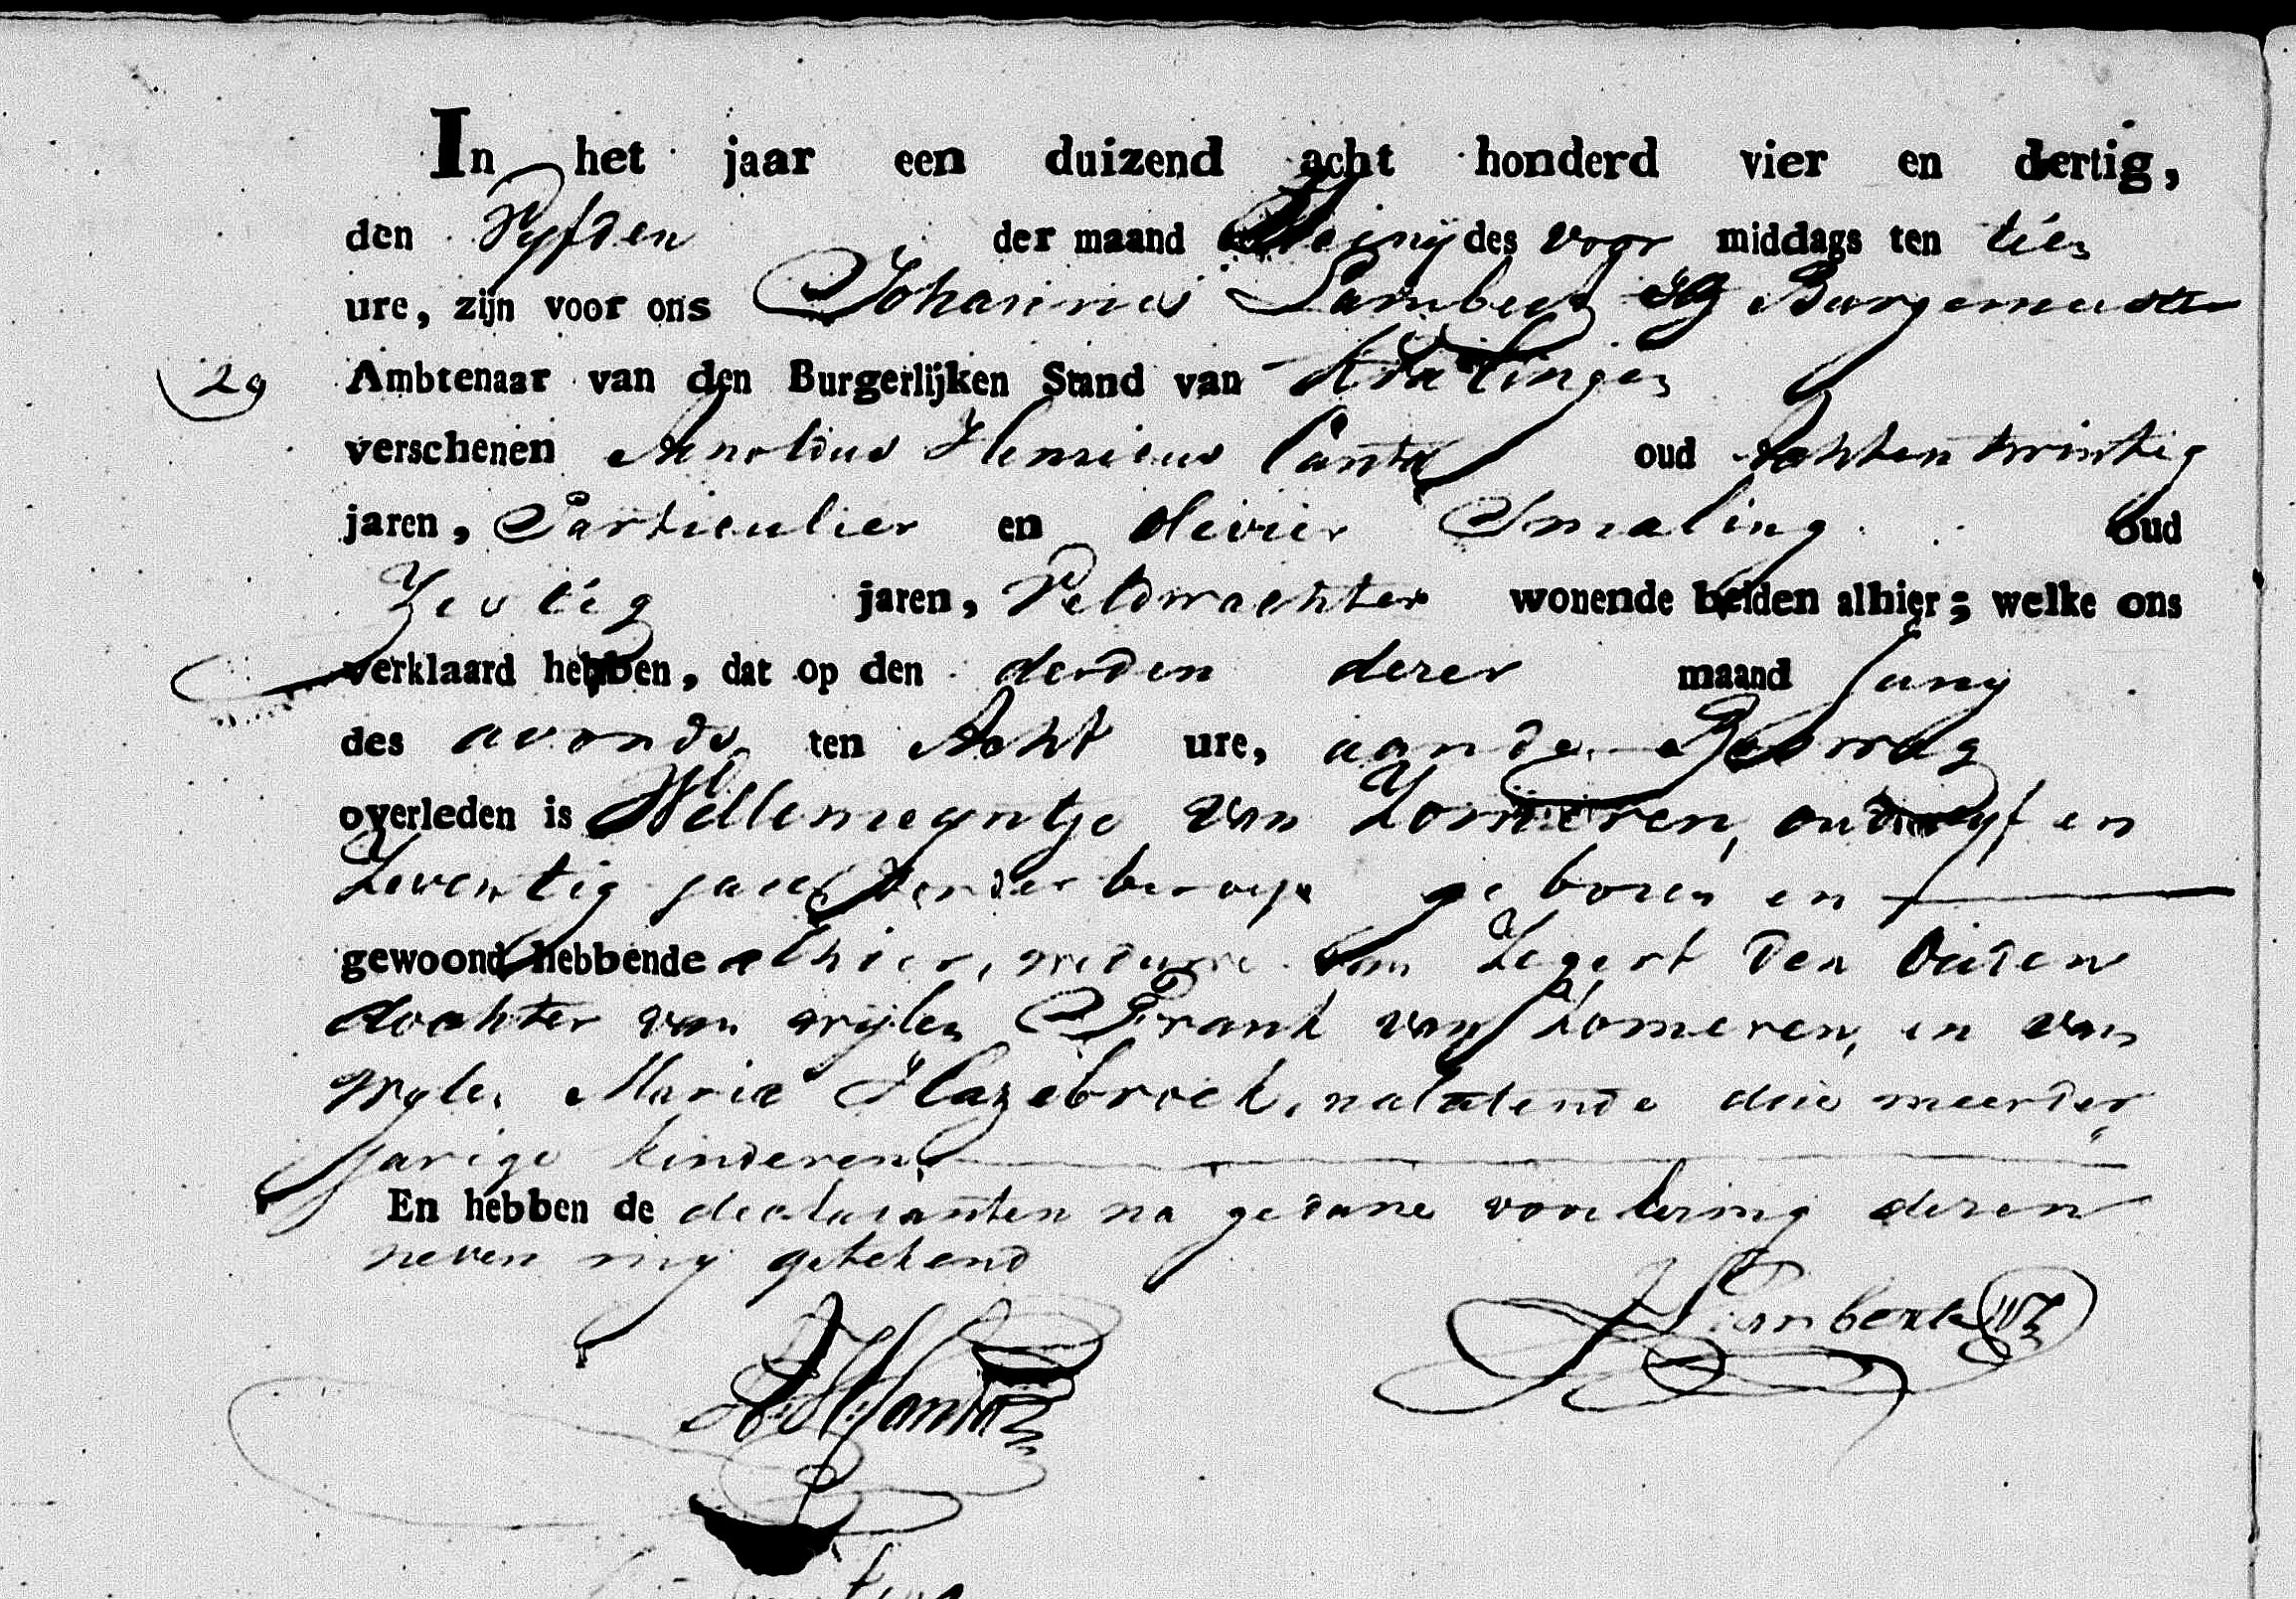 In het jaar een duizend acht honderd vier en dertig,
den Vyfden der maand Juny des voor middags ten tien
ure, zijn voor ons Johannes Lambert Burgemeester
29 Ambtenaar van den Burgerlijken Stand van Kralingen
verschenen Arnoldus Henricus Canta oud Achtentwintig
jaren, Particulier en Olivier Smaling oud
Zestig jaren, Veldwachter wonende beiden alhier; welke ons
verklaard hebben, dat op den derden dezer maand Juny
des avonds ten Acht ure, aan de
overleden is Willemeyntje van Zomeren, oud vyf en
Zeventig jaren Zonder beroep geboren en
gewoond hebbende alhier, weduwe van Zegert den Ouden
dochter van wijlen Frank van Zomeren, en van
wylen Maria Hazebroek, nalatende drie meerder
jarige kinderen.
En hebben de declaranten na gedane voorlezing dezen
neven my getekend
AH Canta
J Lambert